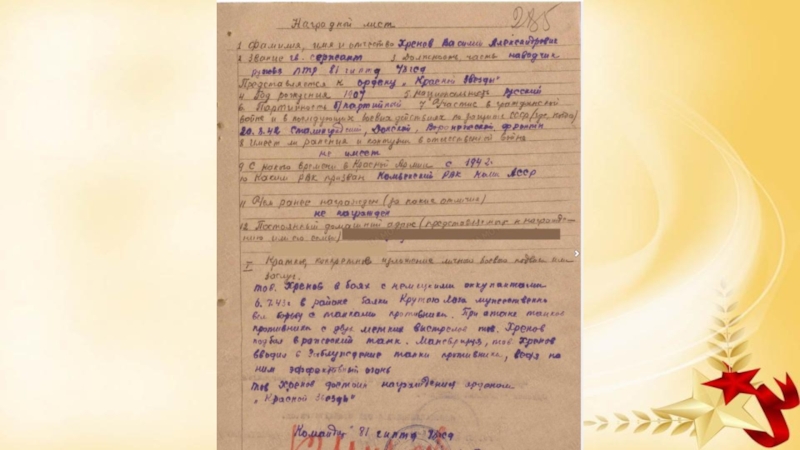 285
Наградной лист
1 Фамилия, имя и отчество Хренов Василий Александрович
2 Звание гв. сержант 3 Должность часть наводчик
ружья ПТР 81 гв гсд
Представляется к ордену „Красной Звезды"
4 Год рождения 1907 5. Национальность русский
6. Партийность 7 Участие в гражданской
войне и в последующих боевых действиях по защите СССР (где, когда)
20.3.42 Донской, Воронежский фронты
8 Имеет ли ранения и контузии в отечественной войне
не имеет
9 С какого времени в Красной Армии с 1942
10 Каким РВК призван РВК АССР
11 Чем ранее награжден (за какие отличия)
не награжден
12 Постоянный домашний адрес (представляемого к награжде-
нию или его семьи)
I Краткое, конкретное изложение личного боевого подвига или
заслуг.
тов. Хренов в боях с немецкими оккупантами
6.7.43 г в районе балки Крутой Лог мужественно
вел борьбу с танками противника. При атаке танков
противника с двух метких выстрелов тов. Хренов
подбил вражеский танк. Маневрируя, тов Хренов
вводил в заблуждение танки противника, ведя по
ним эффективный огонь
тов Хренов достоин награждения орденом
„Красной Звезды"
Командир 81 гв